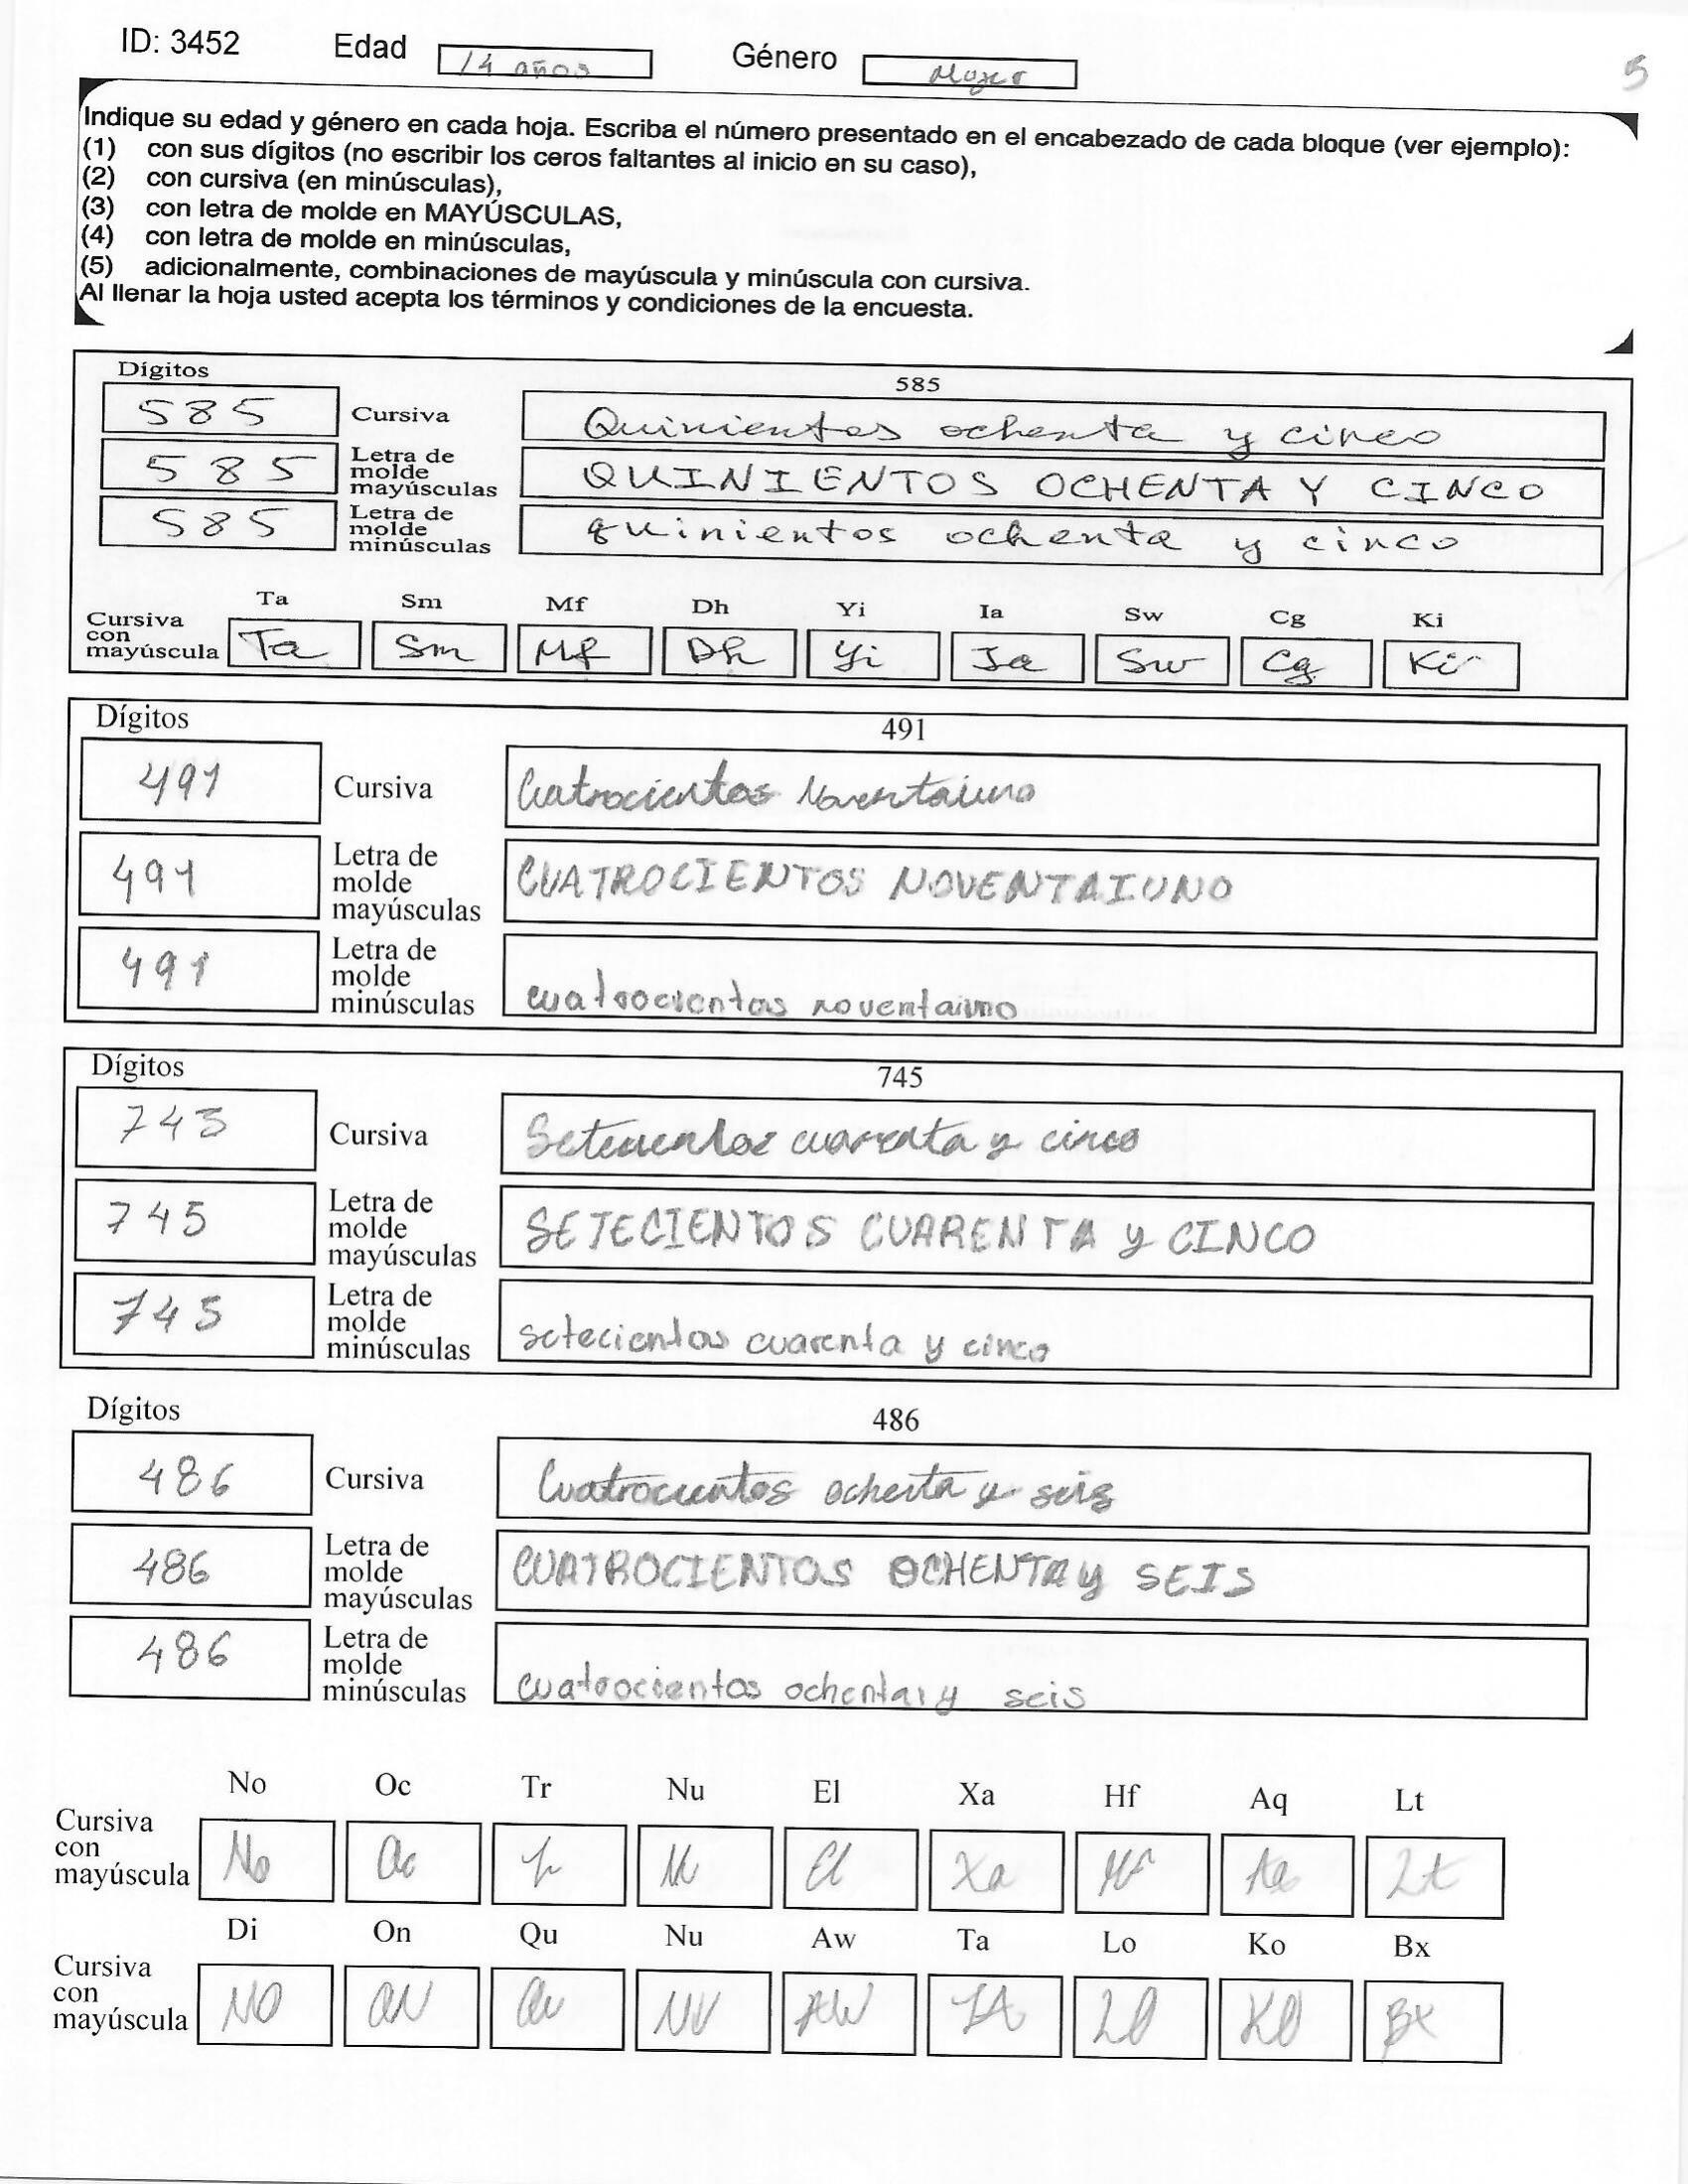 ID: 3452 Edad 14 años Género Mujer 5
Indique su edad y género en cada hoja. Escriba el número presentado en el encabezado de cada bloque (ver ejemplo):
(1) con sus dígitos (no escribir los ceros faltantes al inicio en su caso),
(2) con cursiva (en minúsculas),
(3) con letra de molde en MAYÚSCULAS,
(4) con letra de molde en minúsculas,
(5) adicionalmente, combinaciones de mayúscula y minúscula con cursiva.
Al llenar la hoja usted acepta los términos y condiciones de la encuesta.
Dígitos 585
585 Cursiva Quinientos ochenta y cinco
585 Letra de molde mayúsculas QUINIENTOS OCHENTA Y CINCO
585 Letra de molde minúsculas quinientos ochenta y cinco
Ta Sm Mf Dh Yi Ia Sw Cg Ki
Cursiva con mayúscula Ta Sm Mf Dh Yi Ia Sw Cg Ki
Dígitos 491
491 Cursiva Cuatrocientos Noventaiuno
491 Letra de molde mayúsculas CUATROCIENTOS NOVENTAIUNO
491 Letra de molde minúsculas cuatrocientos noventaiuno
Dígitos 745
745 Cursiva Setecientos cuarenta y cinco
745 Letra de molde mayúsculas SETECIENTOS CUARENTA y CINCO
745 Letra de molde minúsculas setecientos cuarenta y cinco
Dígitos 486
486 Cursiva Cuatrocientos ochenta y seis
486 Letra de molde mayúsculas CUATROCIENTOS OCHENTA y SEIS
486 Letra de molde minúsculas cuatrocientos ochentai y seis
No Oc Tr Nu El Xa Hf Aq Lt
Cursiva con mayúscula No Oc Tr Nu El Xa Hf Aq Lt
Di On Qu Nu Aw Ta Lo Ko Bx
Cursiva con mayúscula NO ON Qu NU AW TA LO KO Bx